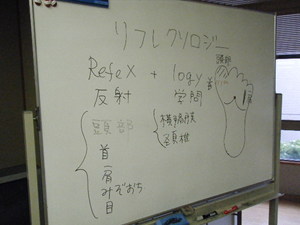 リフレクソロジー
Refex + logy
反射 学問
頭部
首
肩
みぞおち
目
横隔膜
頭部
首
肩